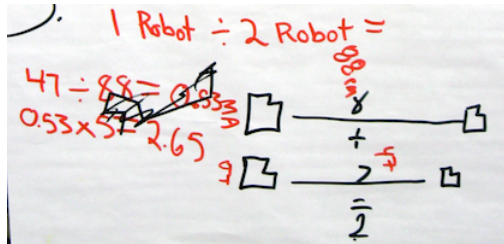 1 Robot ÷ 2 Robot =
47 ÷ 88 = 0.53
0.53 x 5 = 2.65
88 cm
8
÷
2
=
2